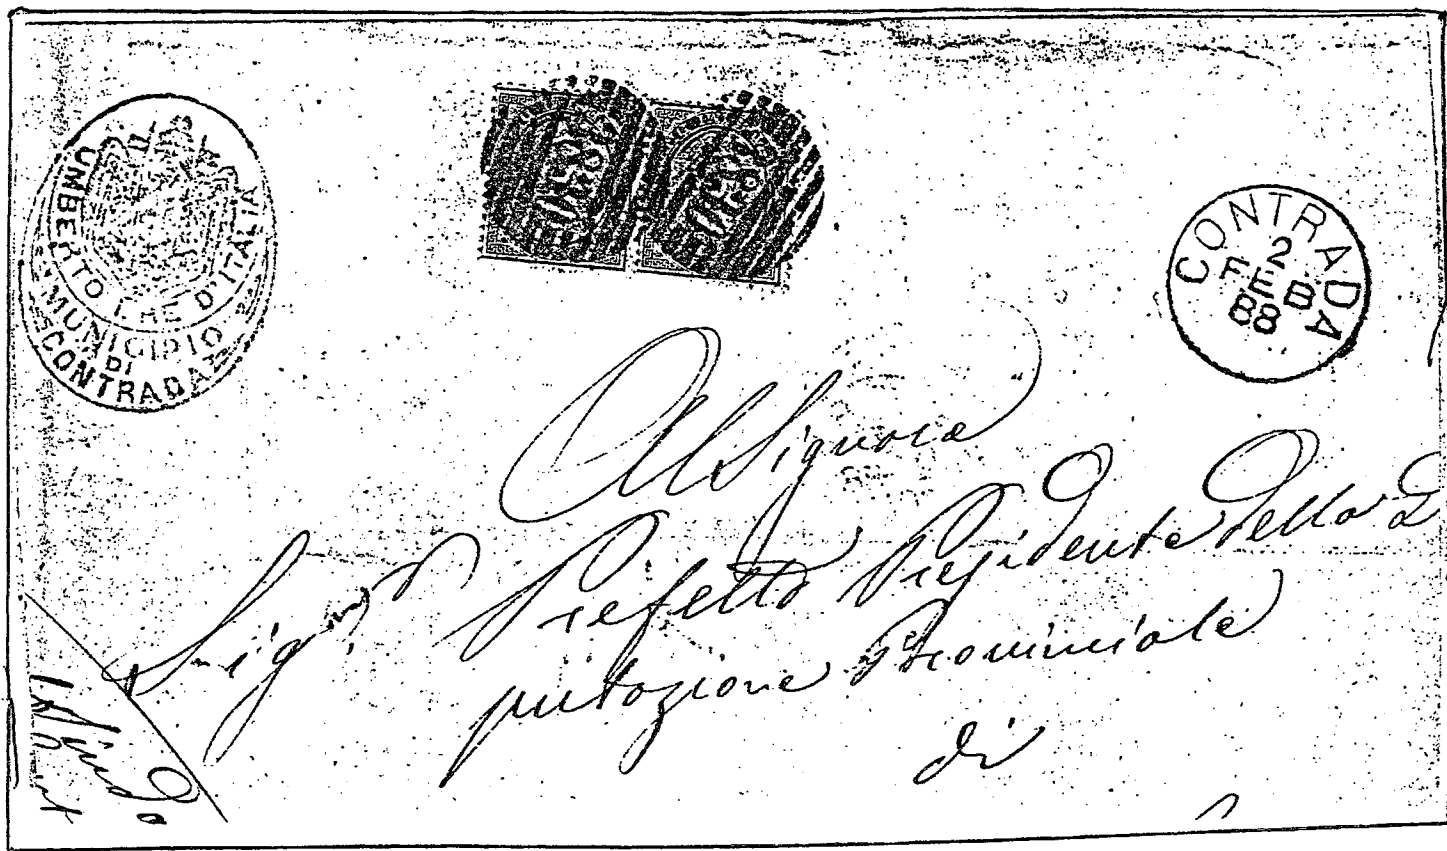 UMBERTO I RE D'ITALIA
MUNICIPIO
DI
CONTRADA
CONTRADA
2
FEB
88
Al Signore
Sig.r Prefetto Presidente della De
putazione Provinciale
di
Il Sindaco